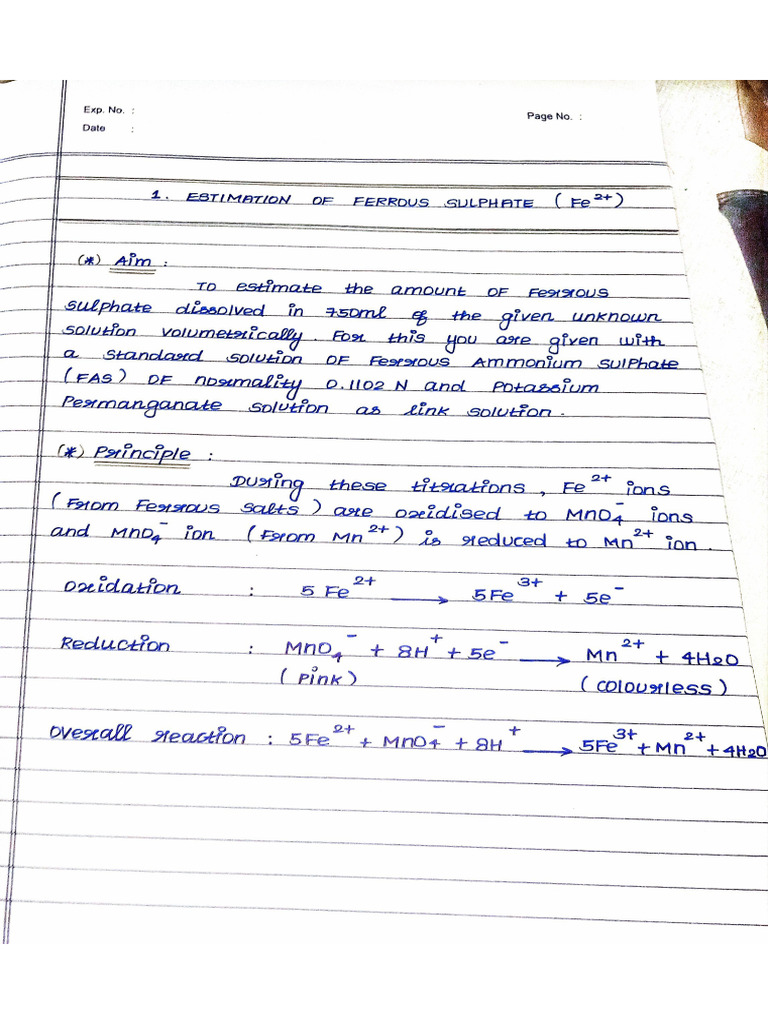 Exp. No. :
Page No. :
Date :
1. ESTIMATION OF FERROUS SULPHATE ( Fe²⁺)
(*) Aim :
To estimate the amount of Ferrous
sulphate dissolved in 750ml of the given unknown
solution volumetrically. For this you are given with
a standard solution of Ferrous Ammonium Sulphate
(FAS) of normality 0.1102 N and Potassium
Permanganate solution as link solution.
(*) Principle :
During these titrations, Fe²⁺ ions
(From Ferrous salts) are oxidised to MnO₄⁻ ions
and MnO₄⁻ ion (From Mn²⁺) is reduced to Mn²⁺ ion.
Oxidation : 5 Fe²⁺ ⟶ 5Fe³⁺ + 5e⁻
Reduction : MnO₄⁻ + 8H⁺ + 5e⁻ ⟶ Mn²⁺ + 4H₂O
(Pink) (Colourless)
Overall reaction : 5Fe²⁺ + MnO₄⁻ + 8H⁺ ⟶ 5Fe³⁺ + Mn²⁺ + 4H₂O